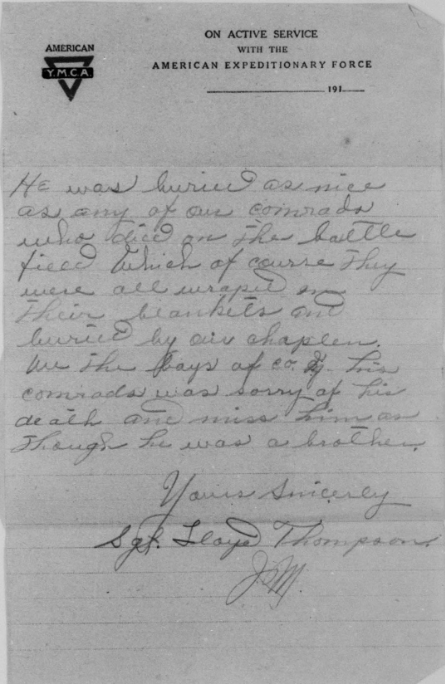 AMERICAN
Y.M.C.A
ON ACTIVE SERVICE
WITH THE
AMERICAN EXPEDITIONARY FORCE
191
He was buried as nice
as any of our comrads
who died on the battle
field Which of course they
were all wraped in
their blankets and
buried by our chaplen.
We the boys of co. his
comrads was sorry of his
death and miss him as
though he was a brother.
Yours Sincerly
Sgt. Lloyd Thompson.